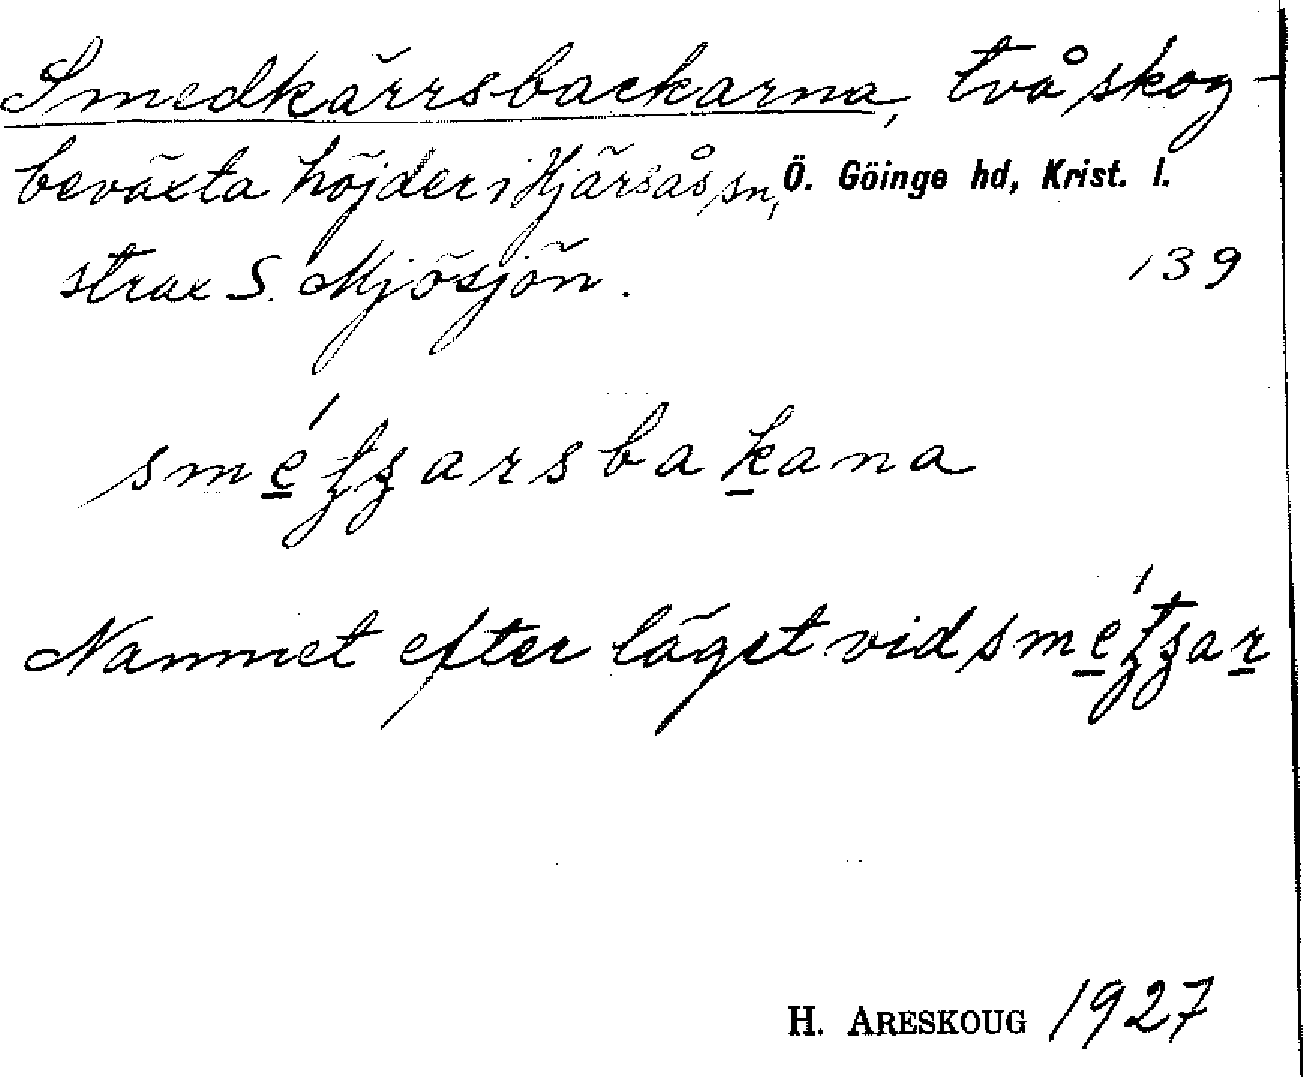 Smedkärrsbackarna, två skog-
beväxta höjder i Hjärsås sn, Ö. Göinge hd, Krist. l.
strax S. Mjösjön. 139
Namnet efter läget vid
H. ARESKOUG 1927